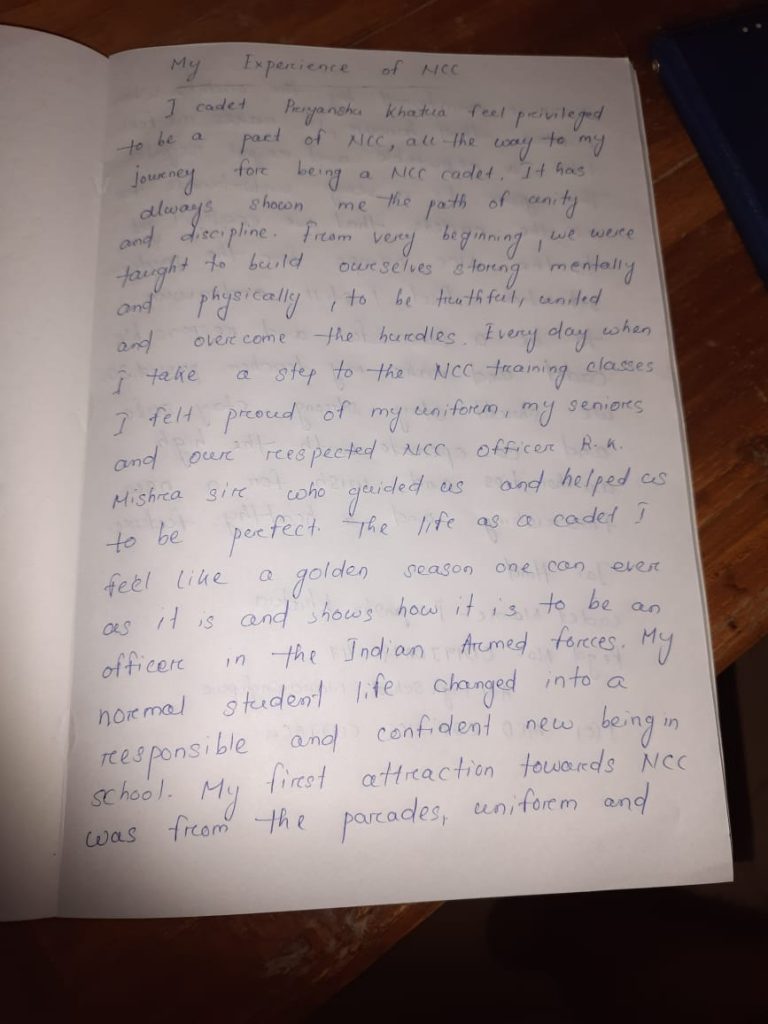 My Experience of NCC
I cadet Priyanshu Khatua feel privileged
to be a part of NCC, all the way to my
journey for being a NCC cadet. It has
always shown me the path of unity
and discipline. From very beginning, we were
taught to build ourselves storng mentally
and physically, to be truthful, united
and overcome the hurdles. Every day when
I take a step to the NCC training classes
I felt proud of my uniform, my seniors
and our respected NCC officer R.K.
Mishra sir who guided us and helped us
to be perfect. The life as a cadet I
feel like a golden season one can ever
as it is and shows how it is to be an
officer in the Indian Armed forces. My
normal student life changed into a
responsible and confident new being in
school. My first attraction towards NCC
was from the parades, uniform and